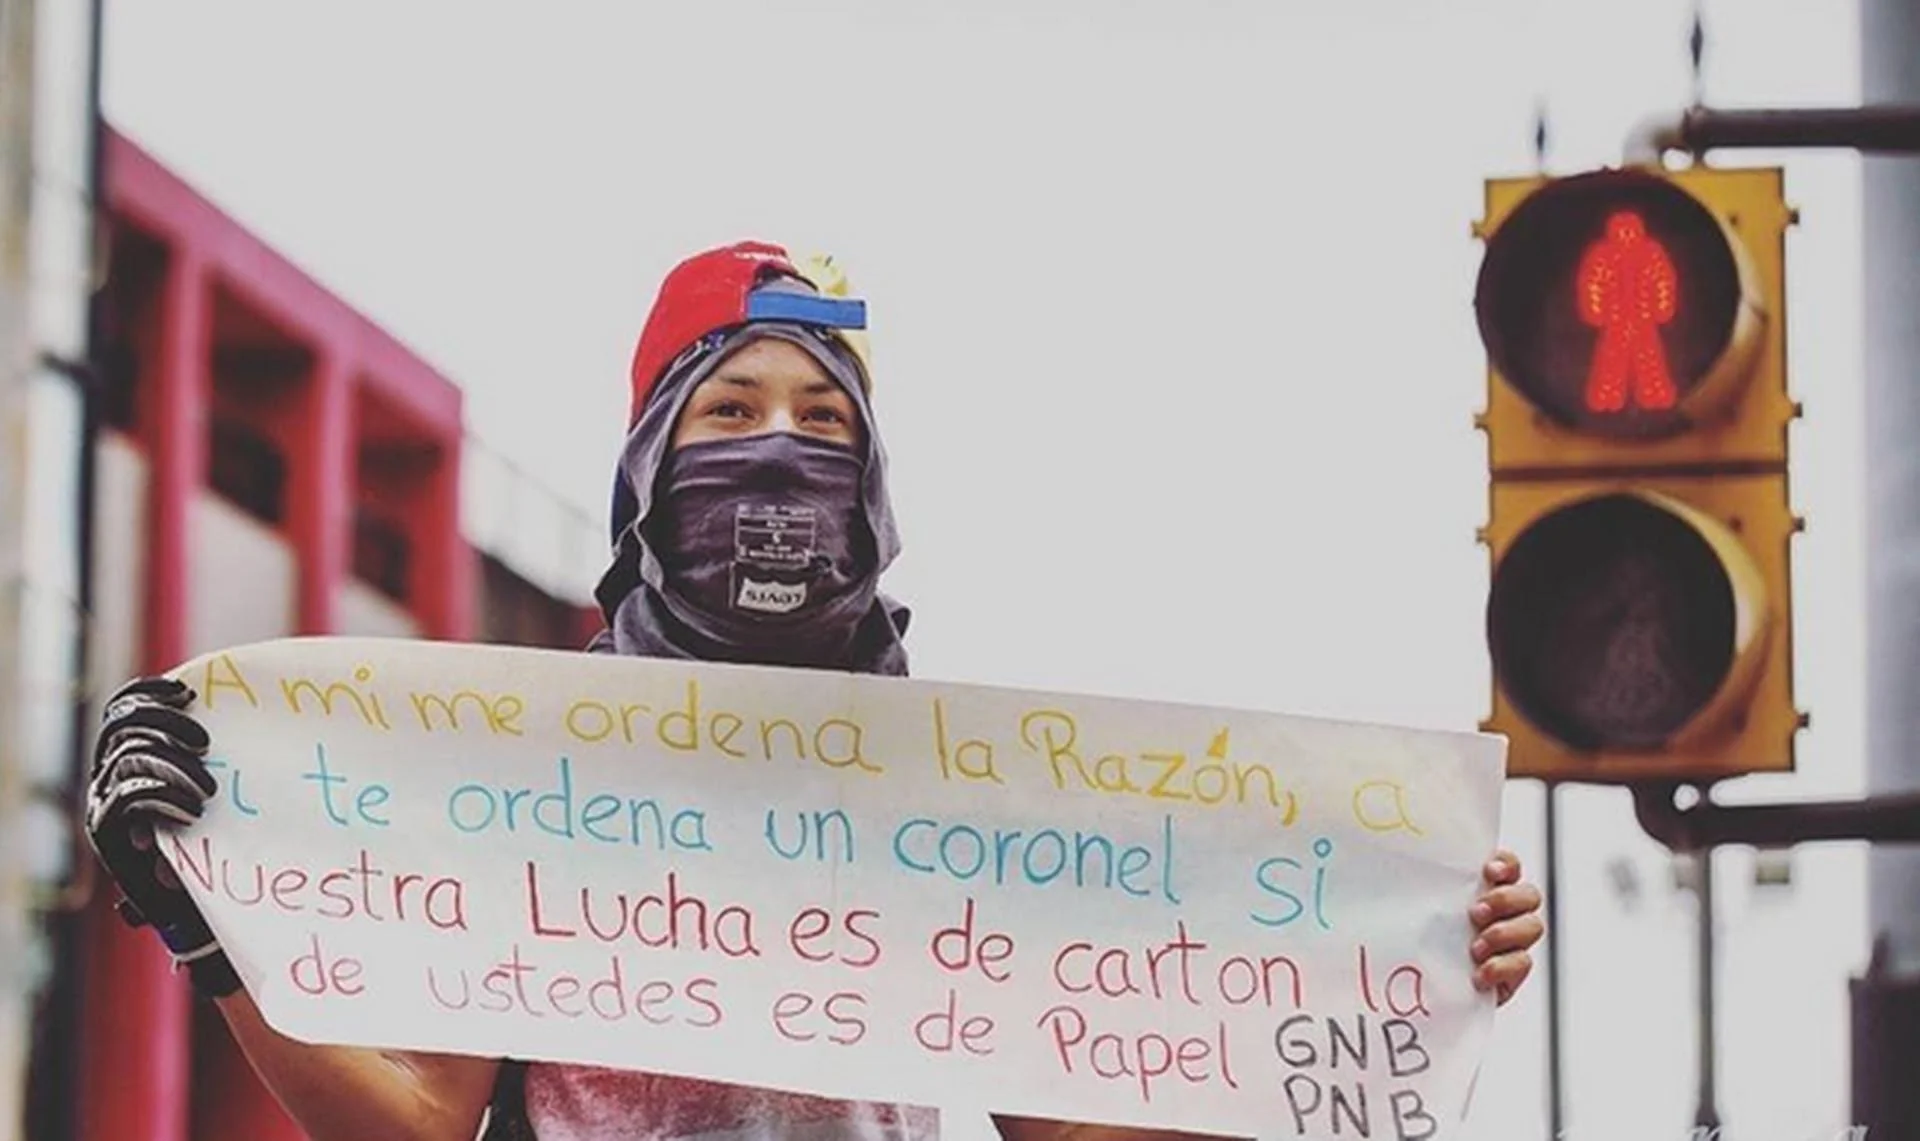 A mi me ordena la Razón, a
ti te ordena un coronel si
Nuestra Lucha es de carton la
de ustedes es de Papel GNB
PNB
LEVI'S